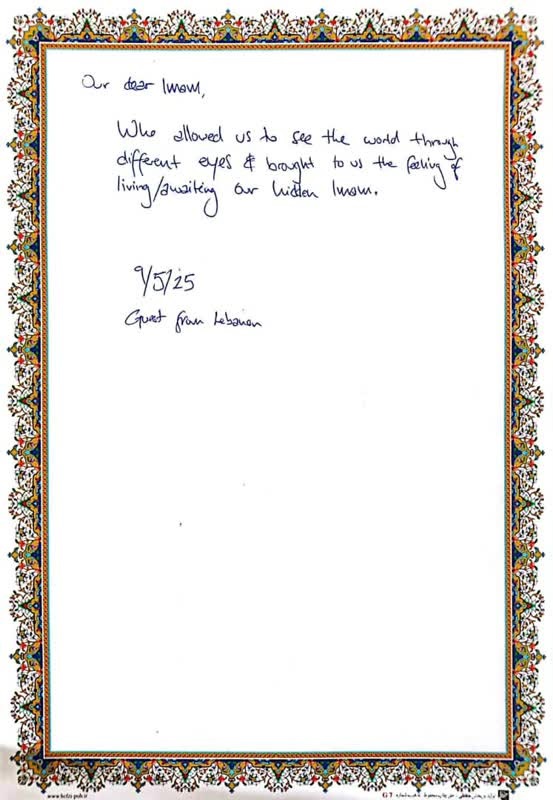 Our dear Imam,
Who allowed us to see the world through
different eyes & brought to us the feeling of
living/awaiting our hidden Imam.
9/5/25
Guest from Lebanon
www.hefzi-pub.ir
G 7